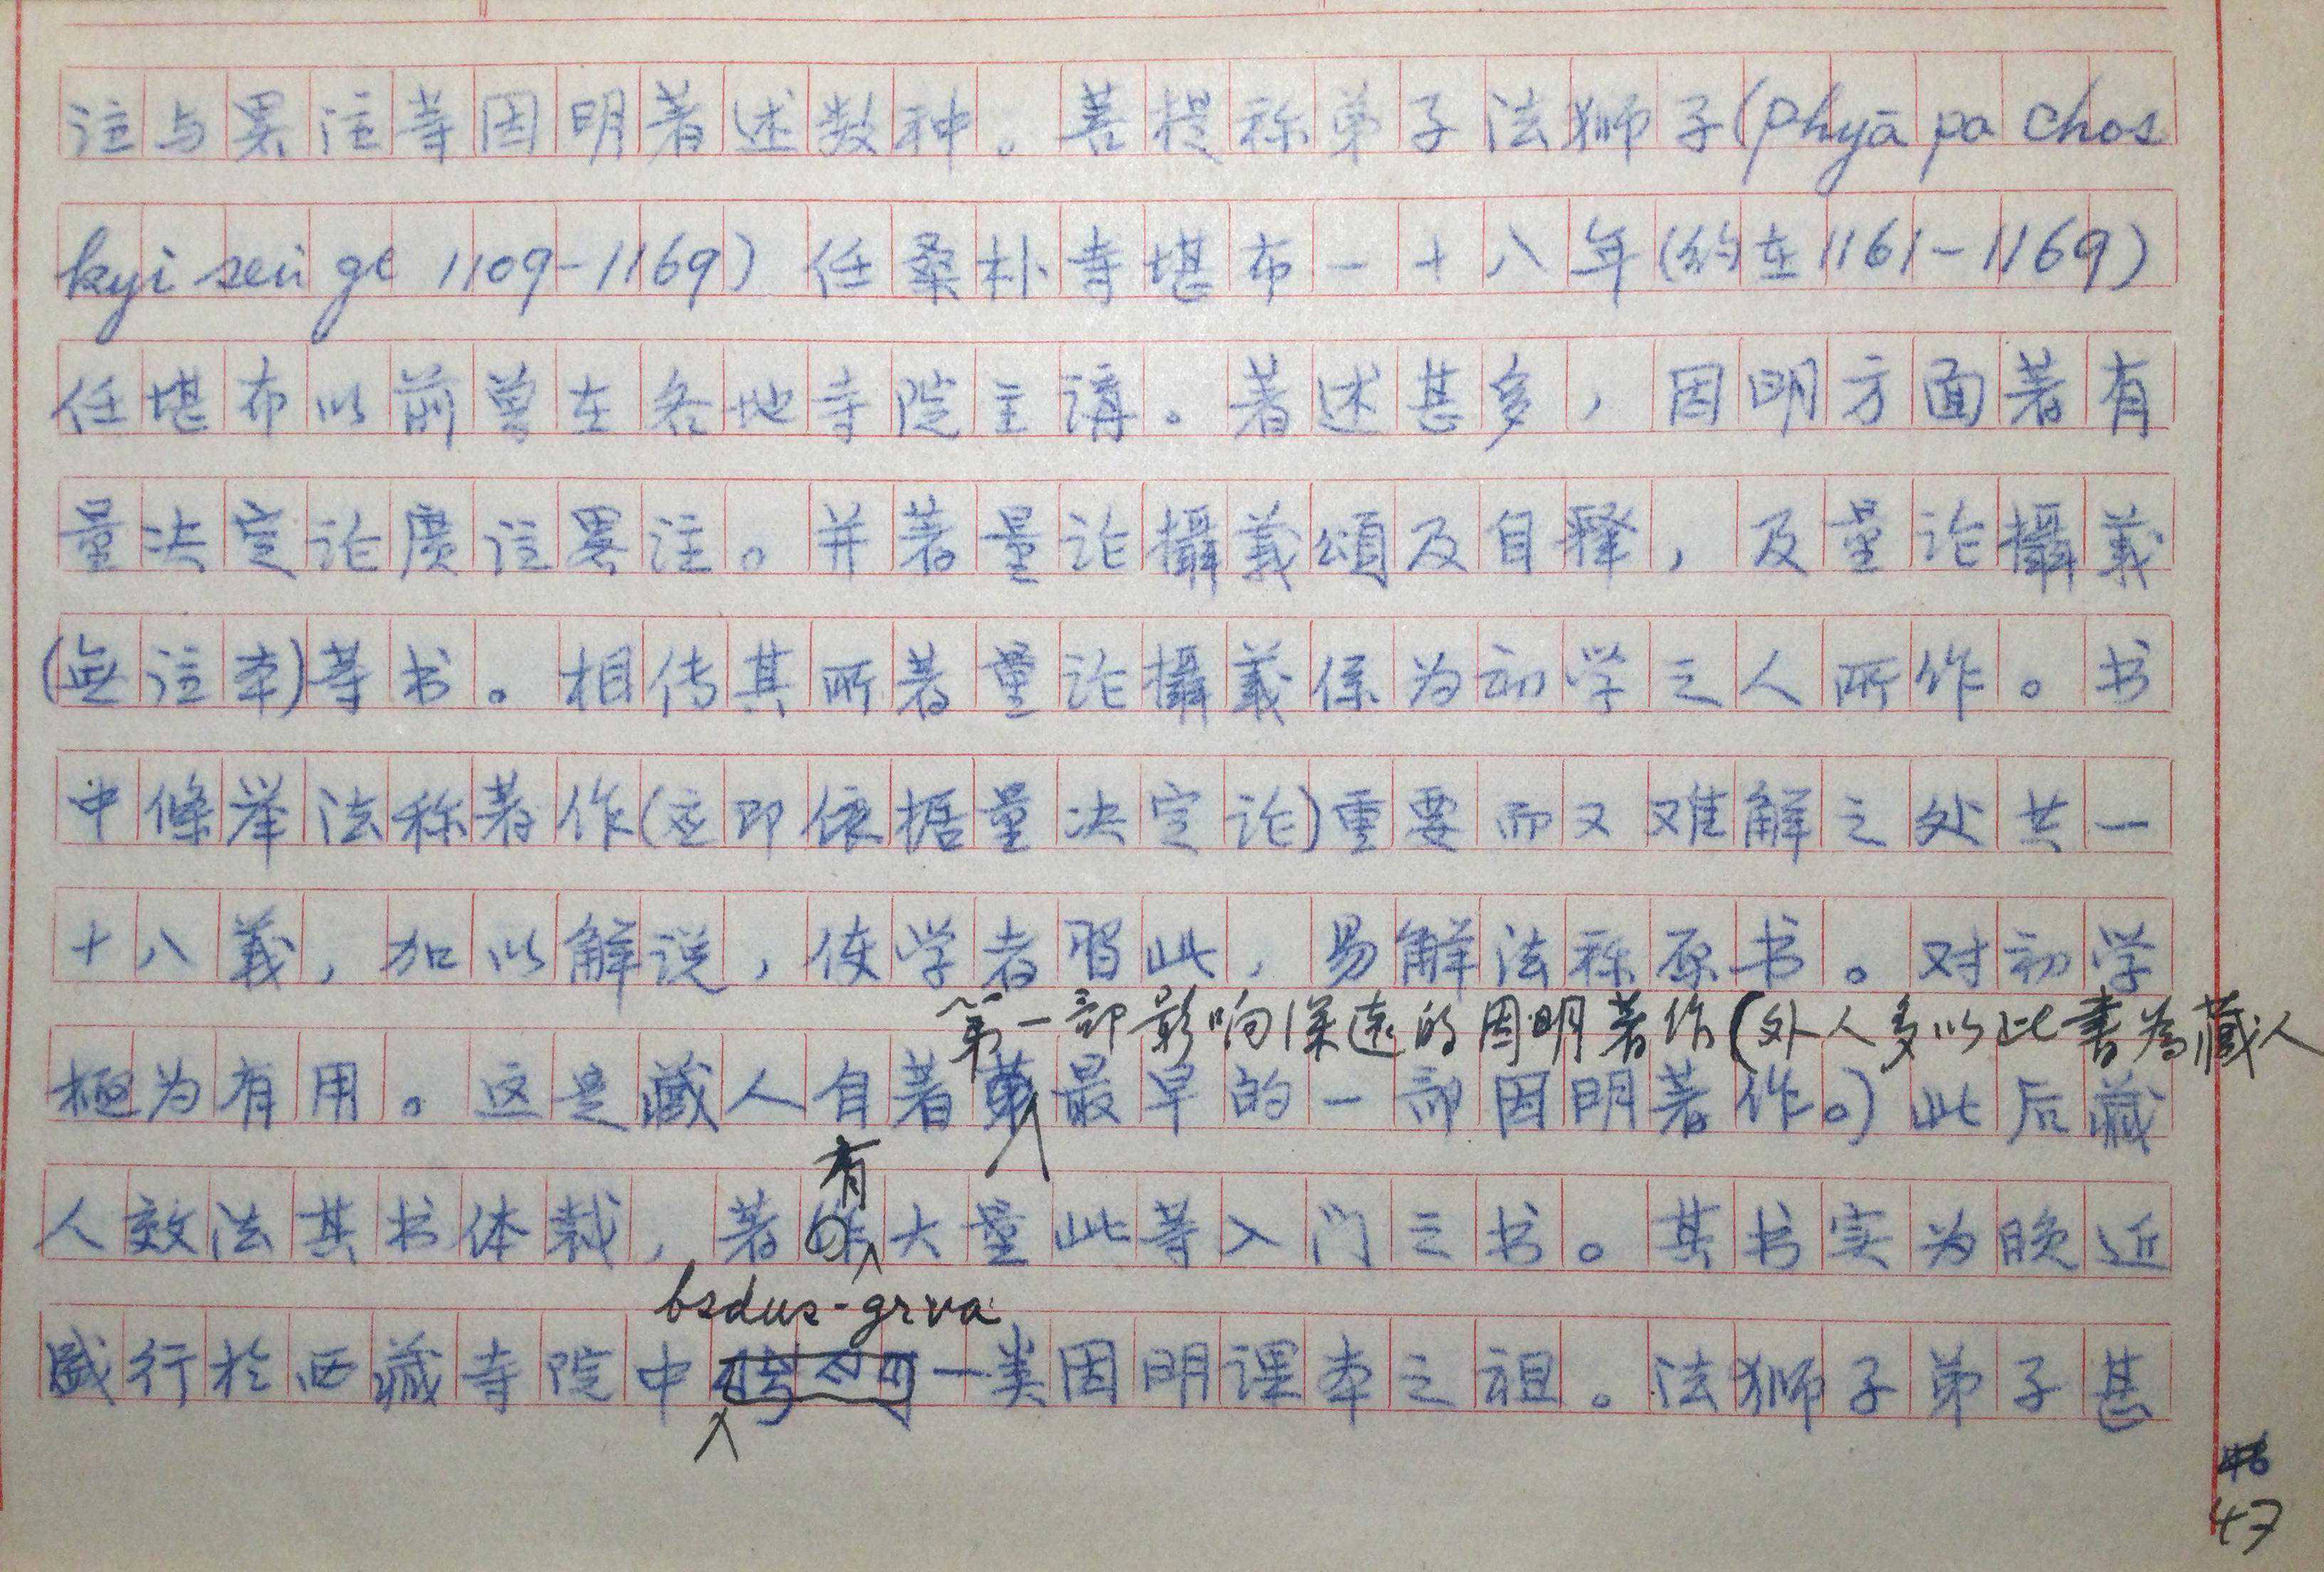 注与畧注等因明著述数种。菩提称弟子法狮子(phyā pa chos
kyi sen ge 1109-1169)任桑朴寺堪布一十八年(约在1161-1169)
任堪布以前曾在各地寺院主講。著述甚多，因明方面著有
量决定论廣注畧注。并著量论攝義頌及自释，及量论攝義
(無注本)等书。相传其所著量论攝義係为初学之人所作。书
中條举法称著作(应即依据量决定论)重要而又难解之处共一
十八義，加以解说，使学者習此，易解法称原书。对初学
第一部影响深遠的因明著作(外人多以此書為藏人
極为有用。这是藏人自著最早的一部因明著作。)此后藏
有
人效法其书体裁，著大量此等入门之书。其书实为晚近
bsdus-grva
盛行於西藏寺院中一类因明课本之祖。法狮子弟子甚
46
47